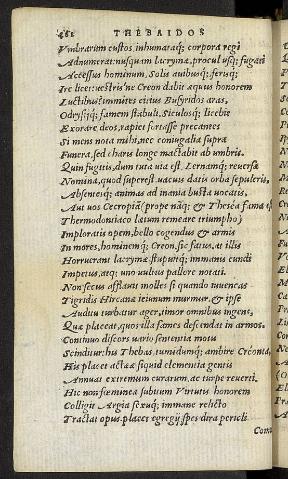 462 THEBAIDOS
Vmbrarum custos inhumataq; corpora regi
Adnumerat: nusquam lacryma, procul usq; fugati
Accessus hominum, Solis auibusq; ferisq;
Ire licet: uestris'ne Creon dabit æquus honorem
Luctibus? immites citius Busyridos aras,
Odrysijq; famem stabuli, Siculosq; licebit
Exorare deos, rapiet fortasse precantes
Si mens nota mihi, nec coniugalia supra
Funera, sed charis longe mactabit ab umbris.
Quin fugitis, dum tuta uia est, Lernamq; reuersæ
Nomina, quod superest uacuis datis orba sepulcris,
Absentesq; animas ad inania busta uocatis.
Aut uos Cecropiã (prope nãq; & Thesea fama est
Thermodontiaco lætum remeare triumpho)
Imploratis opem, bello cogendus & armis
In mores, hominemq; Creon. sic fatus, at illis
Horruerunt lacrymæ stupuitq; immanis eundi
Impetus, atq; uno uultus pallore notati.
Non secus afflauit molles si quando iuuencas
Tigridis Hircanæ ieiunum murmur, & ipse
Auditu turbatur ager, timor omnibus ingens,
Quæ placeat, quos illa fames descendat in armos.
Continuo discors uario sententia motu
Scinditur: his Thebas, tumidumq; ambire Creonta,
His placet actææ siquid clementia gentis
Annuat: extremum curarum, ac turpe reuerti.
Hic non fœmineæ subitum Virtutis honorem
Colligit Argia sexuq; immane relicto
Tractat opus. placet egregij spes dira pericli